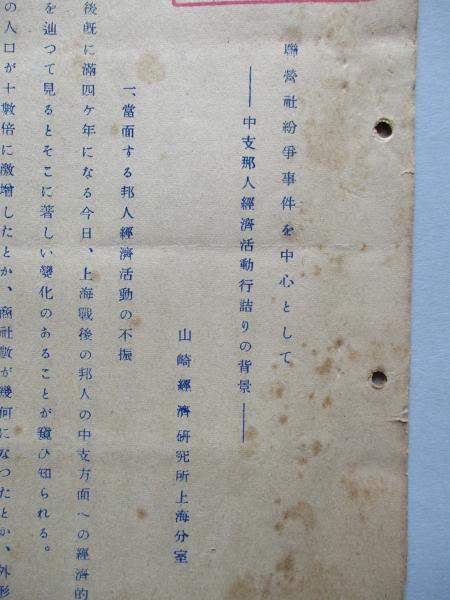 聯營社紛爭事件を中心として
──中支邦人經濟活動行詰りの背景──
山崎經濟硏究所上海分室
一、當面する邦人經濟活動の不振
後旣に滿四ケ年になる今日、上海戰後の邦人の中支方面への經濟的
を辿つて見るとそこに著しい變化のあることが窺ひ知られる。
の人口が十數倍に激增したとか、商社數が幾何になつたとか、外形